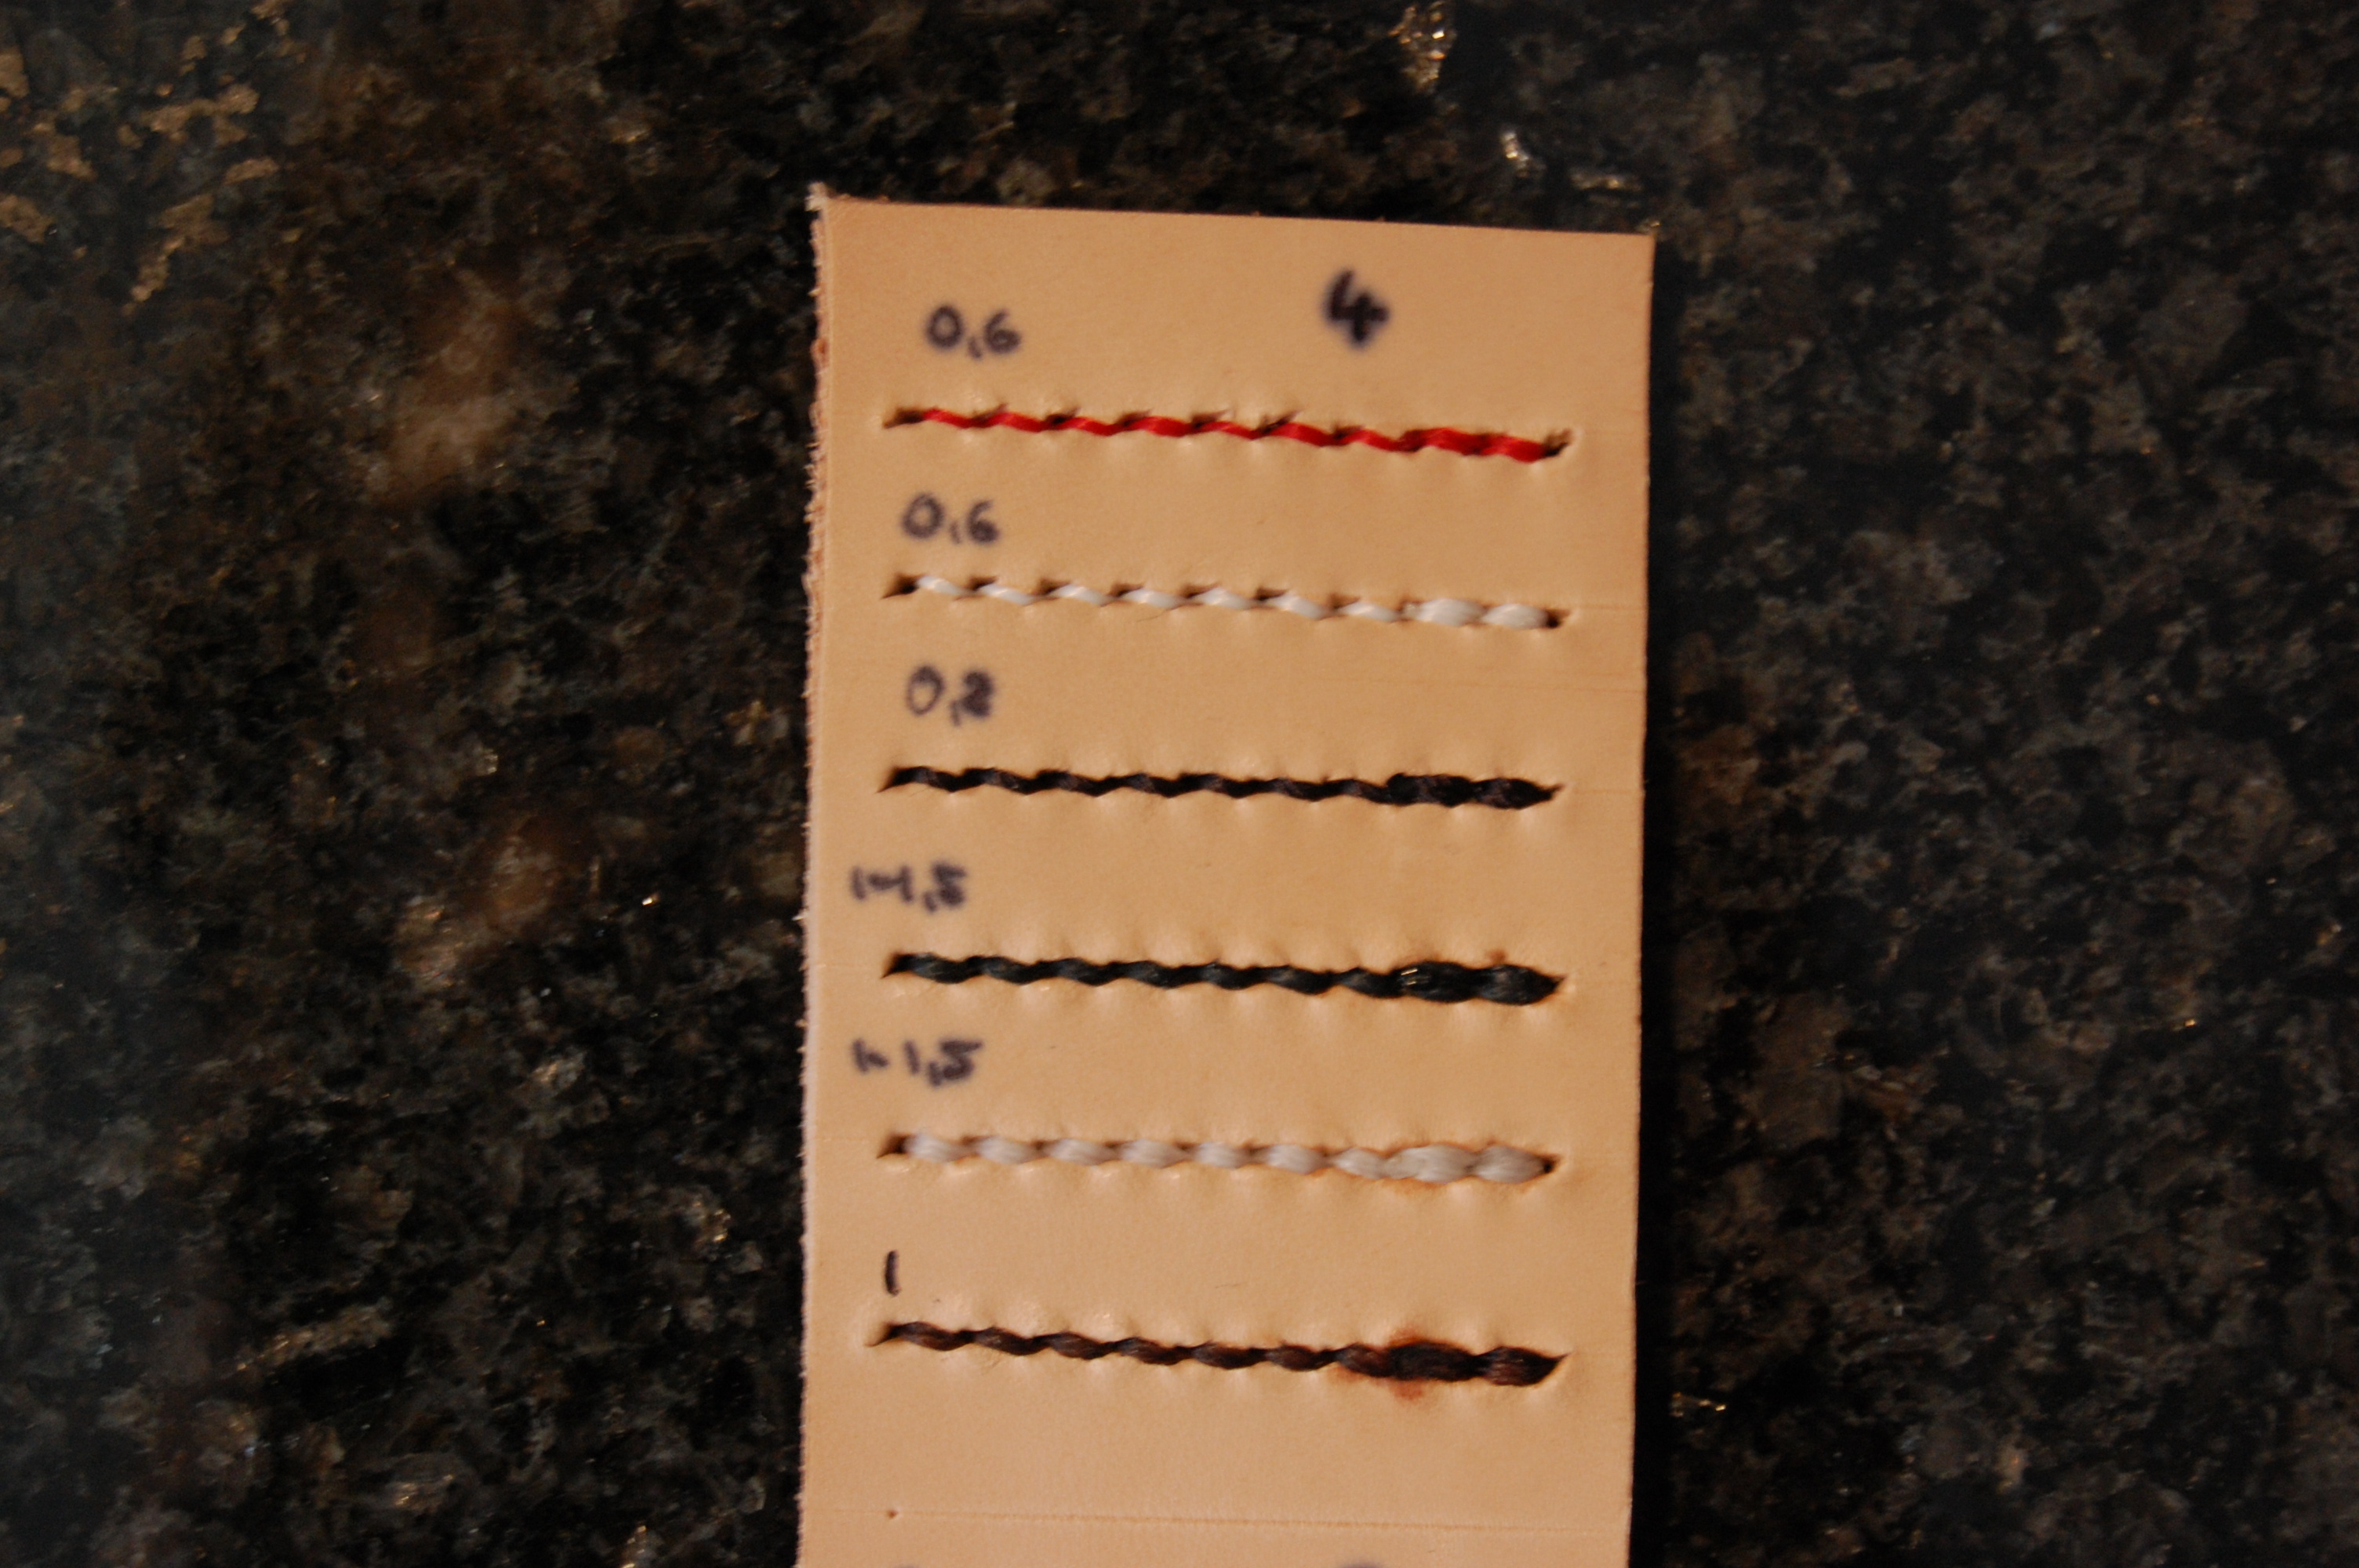 0,6 4
0,6
0,8
1-1,5
1-1,5
1